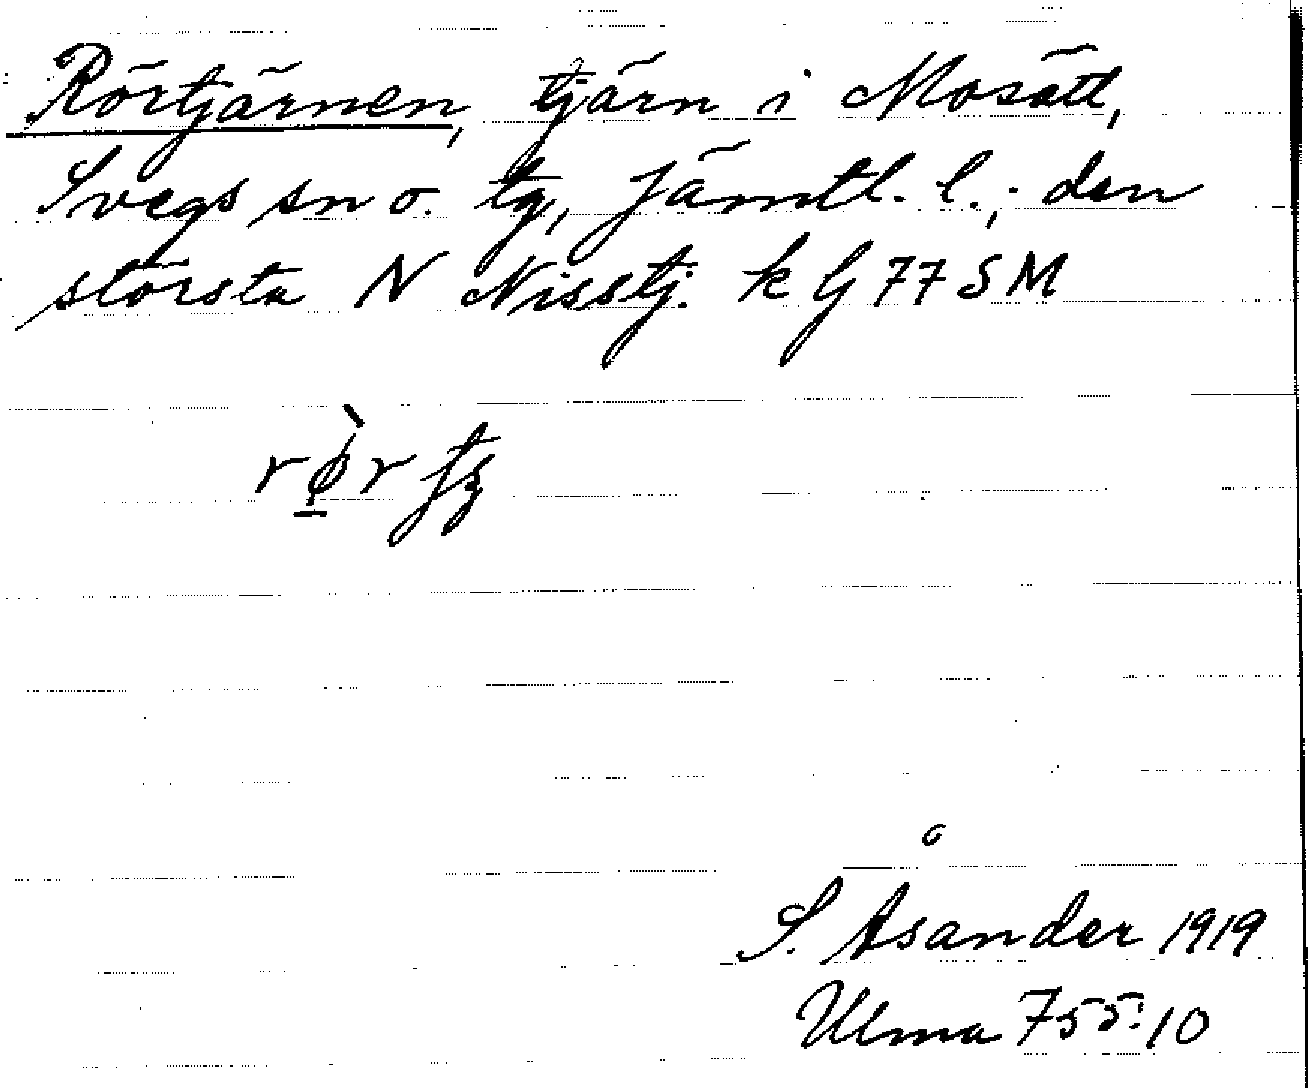 Rörtjärnen, tjärn i Mosätt,
Svegs sn o. tg, Jämtl. l.; den
största N Nisstj. k G 77 S M
S. Åsander 1919
Ulma 755:10